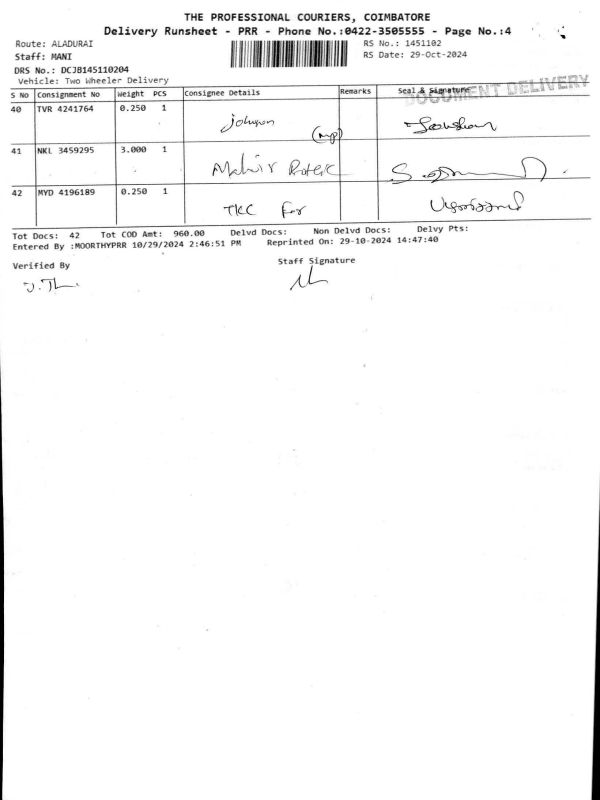 THE PROFESSIONAL COURIERS, COIMBATORE
Delivery Runsheet - PRR - Phone No.:0422-3505555 - Page No.:4
Route: ALADURAI
RS No.: 1451102
Staff: MANI
RS Date: 29-Oct-2024
DRS No.: DCJB145110204
Vehicle: Two Wheeler Delivery
DOCUMENT DELIVERY
S No Consignment No Weight PCS Consignee Details Remarks Seal & Signature
40 TVR 4241764 0.250 1
Johnson
(mp)
41 NKL 3459295 3.000 1
Mahir
42 MYD 4196189 0.250 1
TKC For
Tot Docs: 42 Tot COD Amt: 960.00 Delvd Docs: Non Delvd Docs: Delvy Pts:
Entered By :MOORTHYPRR 10/29/2024 2:46:51 PM Reprinted On: 29-10-2024 14:47:40
Verified By
Staff Signature